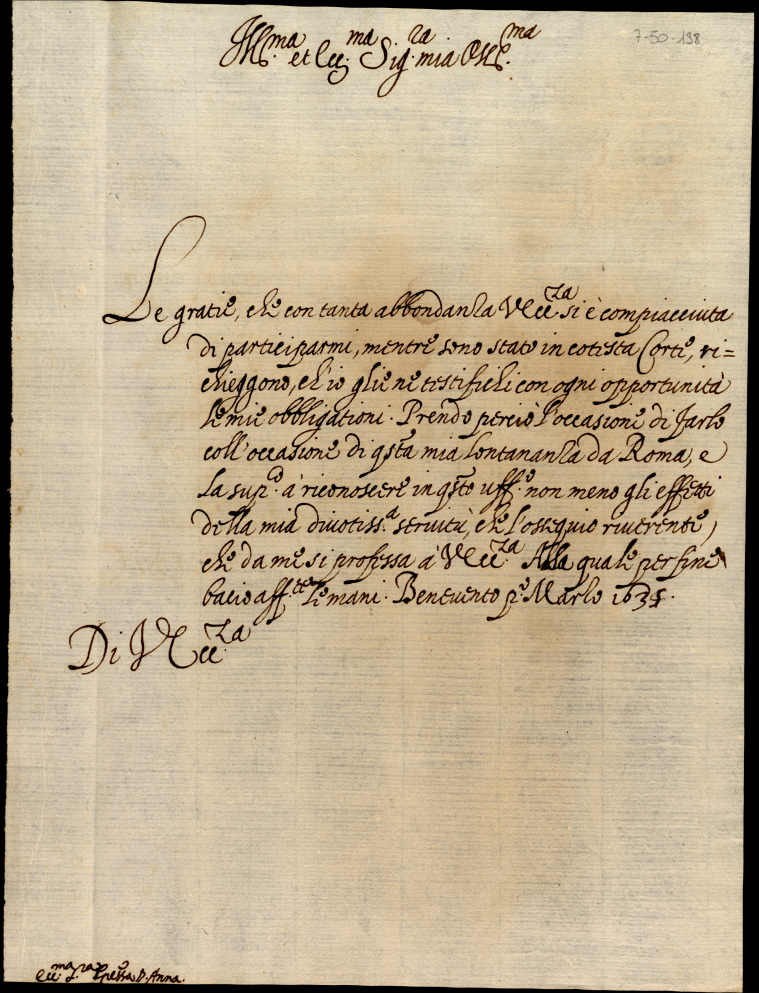 7-50-138
Ill.ma et Ecc.ma Sig.ra mia Oss.ma
Le gratie, che con tanta abbondanza V Ecc.za si è compiacciuta
di participarmi, mentre sono stato in cotesta Corte, ri=
chieggono, ch'io gliene testifichi con ogni opportunità
le mie obbligationi. Prendo perciò l'occasione di farlo
coll'occasione di q̃sta mia lontananza da Roma, e
la sup.co à riconoscere in q̃sto uff.o non meno gli effetti
della mia divotiss.a servitù, che l'ossequio riverente,
che da me si professa à V Ecc.za Alla quale per fine
bacio aff.te le mani. Benevento p.o Marzo 1635.
Di V Ecc.za
Ecc.ma S.ra Pñpessa D. Anna.